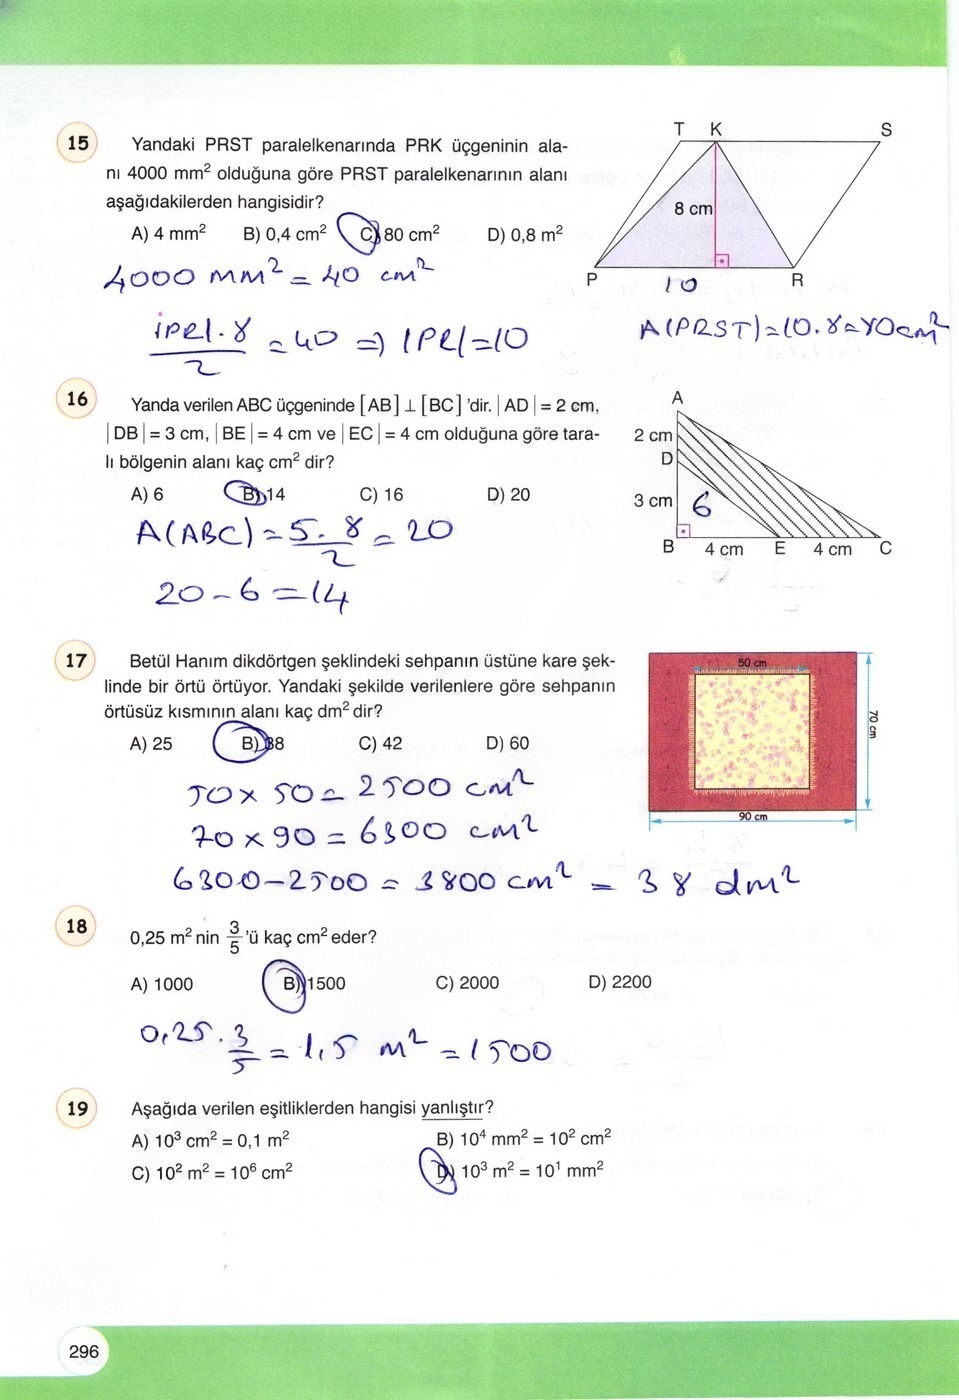 15 Yandaki PRST paralelkenarında PRK üçgeninin ala-
nı 4000 mm² olduğuna göre PRST paralelkenarının alanı
aşağıdakilerden hangisidir?
A) 4 mm² B) 0,4 cm² C) 80 cm² D) 0,8 m²
T K S
8 cm
P R
10
4000 mm² = 40 cm²
|PR|.8
/2 = 40 => |PR|=10
A(PRST)=10.8=80cm²
16 Yanda verilen ABC üçgeninde [AB] ⊥ [BC] 'dir. | AD | = 2 cm,
| DB | = 3 cm, | BE | = 4 cm ve | EC | = 4 cm olduğuna göre tara-
lı bölgenin alanı kaç cm² dir?
A) 6 B) 14 C) 16 D) 20
A
2 cm
D
3 cm 6
B 4 cm E 4 cm C
A(ABC) = 5.8/2 = 20
20 - 6 = 14
17 Betül Hanım dikdörtgen şeklindeki sehpanın üstüne kare şek-
linde bir örtü örtüyor. Yandaki şekilde verilenlere göre sehpanın
örtüsüz kısmının alanı kaç dm² dir?
A) 25 B) 38 C) 42 D) 60
50 cm
70 cm
90 cm
50 x 50 = 2500 cm²
70 x 90 = 6300 cm²
6300-2500 = 3800 cm² = 38 dm²
18 0,25 m² nin 3/5 'ü kaç cm² eder?
A) 1000 B) 1500 C) 2000 D) 2200
0,25 . 3/5 = 1,5 m² = 1500
19 Aşağıda verilen eşitliklerden hangisi yanlıştır?
A) 10³ cm² = 0,1 m² B) 10⁴ mm² = 10² cm²
C) 10² m² = 10⁶ cm² D) 10³ m² = 10¹ mm²
296